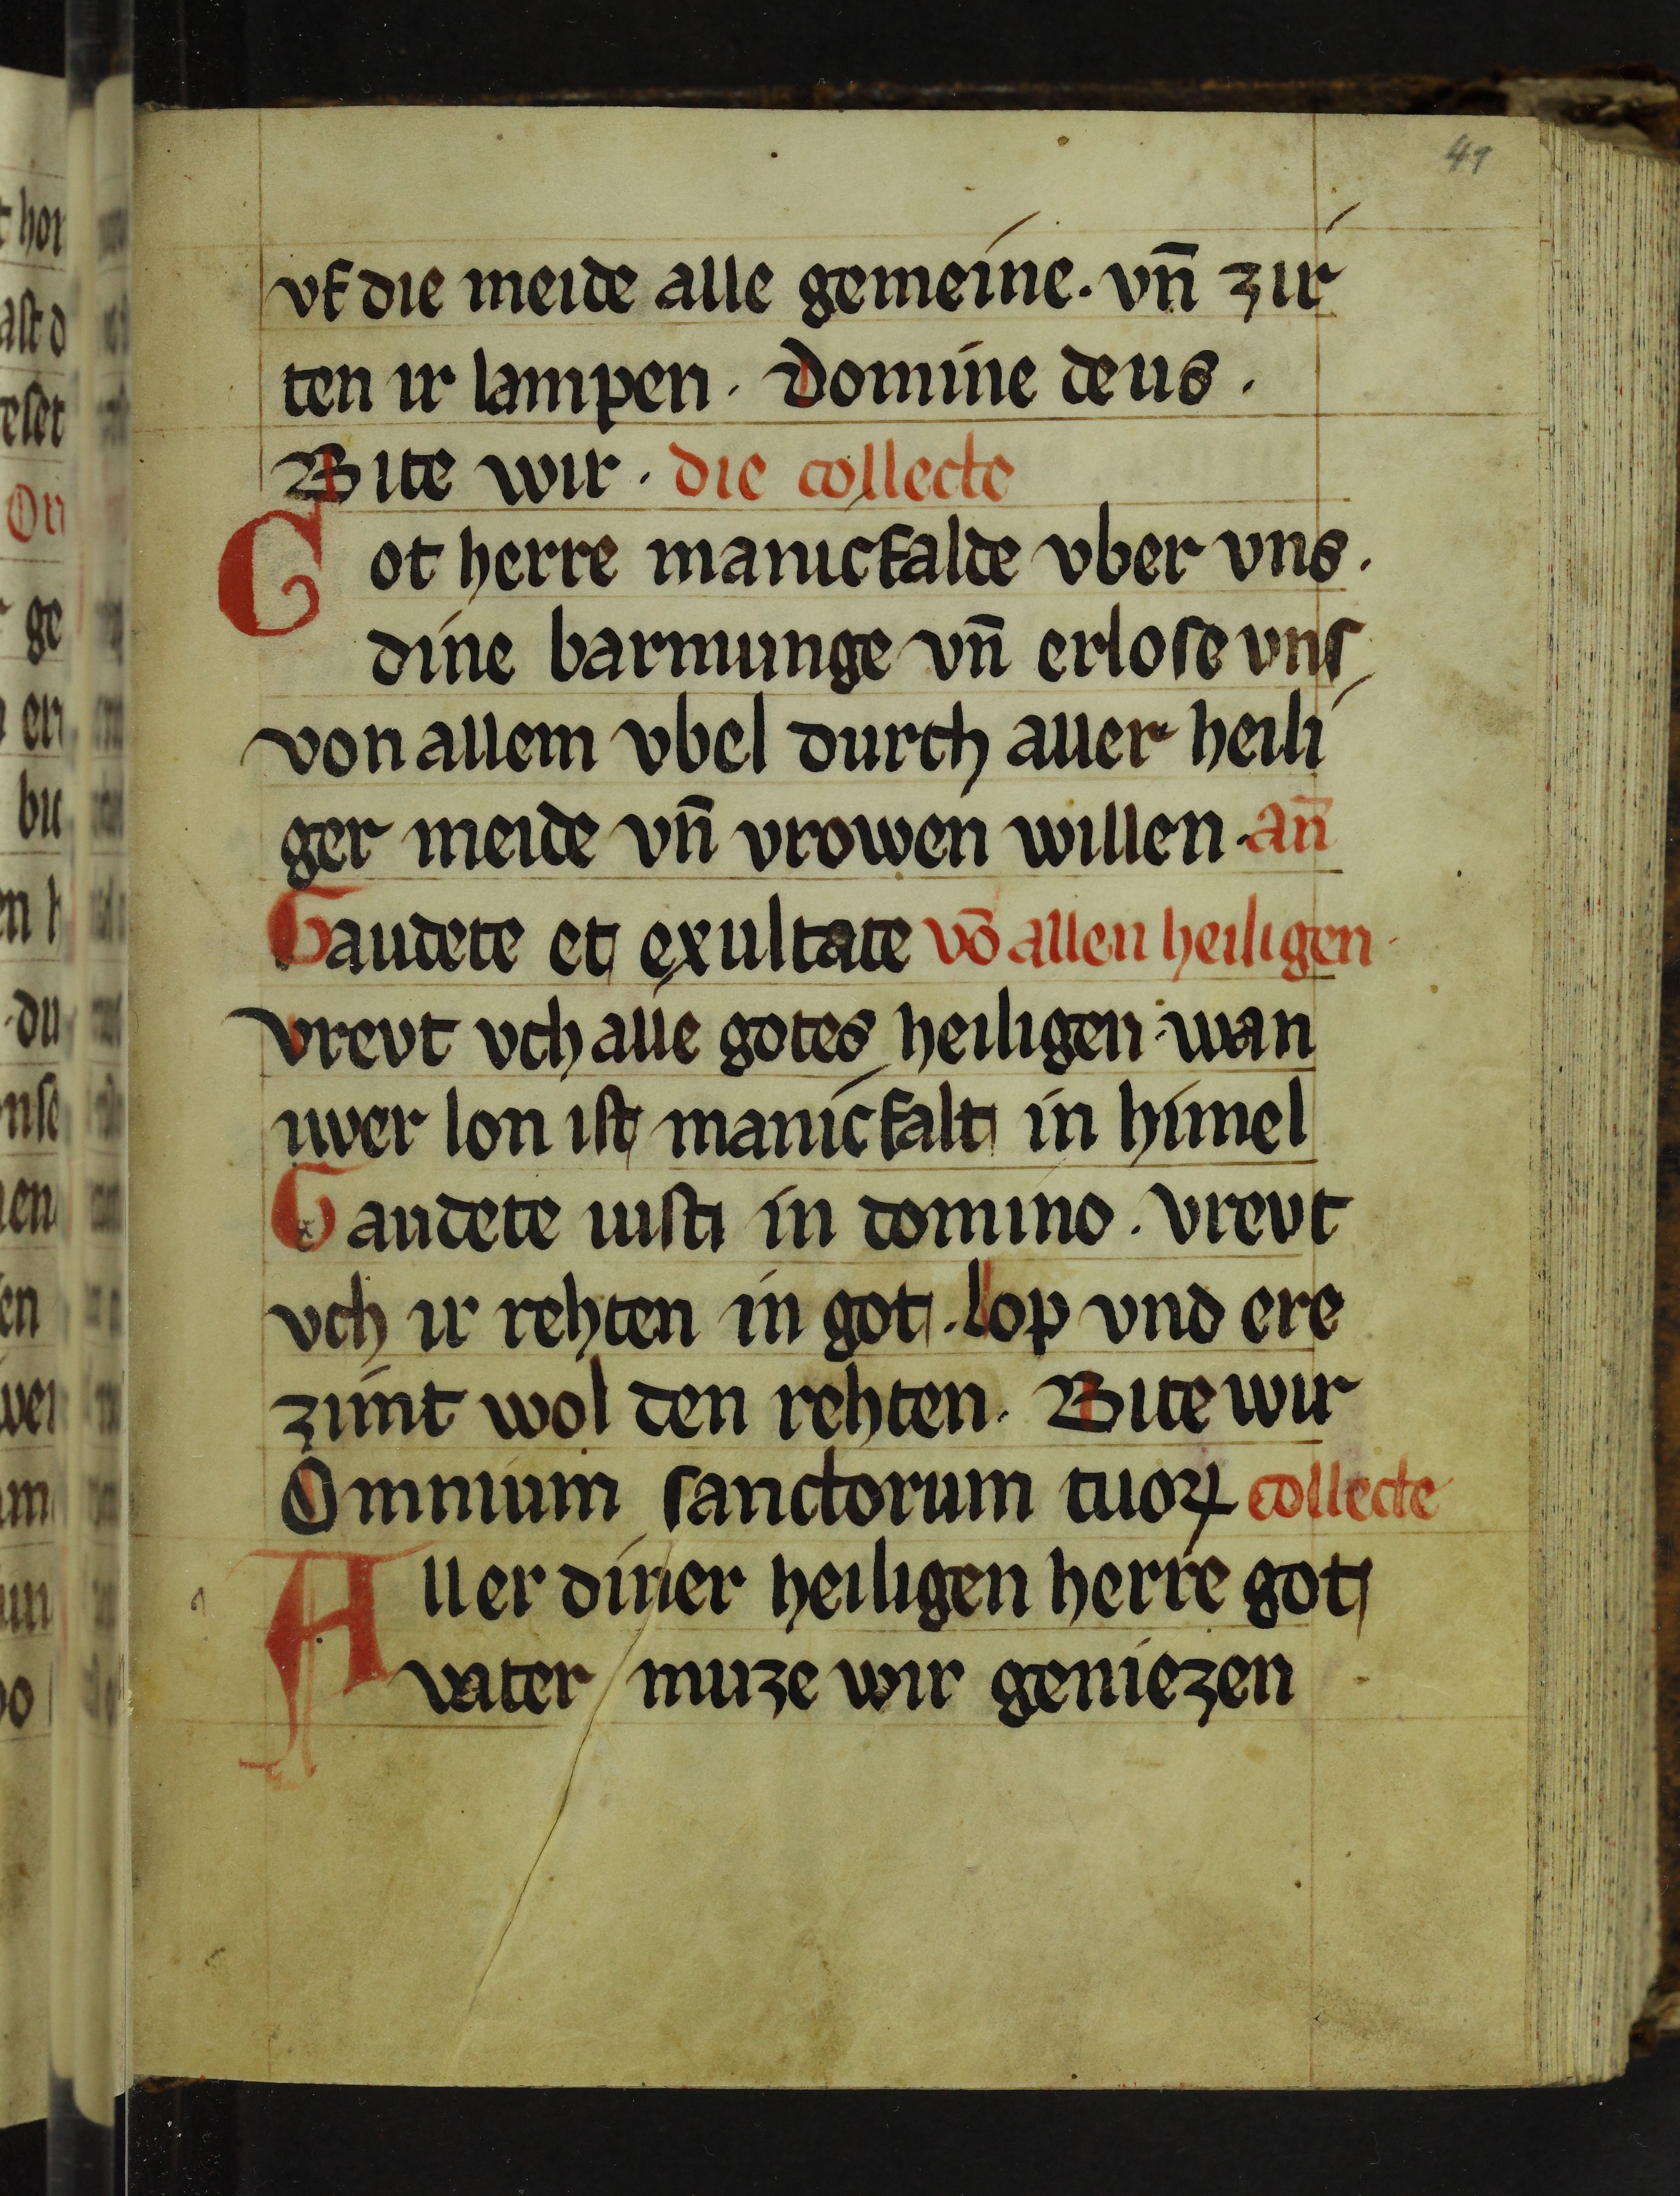 41
vf die meide alle gemeine. vn̄ zir
ten ir lampen. Domine deus.
Bite wir. die collecte
Got herre manicfalde vber vns.
dine barmunge vn̄ erlose vns
von allem vbel durch aller heili
ger meide vn̄ vrowen willen. an̄
Gaudete et exultate vō allen heiligen.
vrevt vch alle gotes heiligen. wan
uwer lon ist manicfalt in himel
Gaudete iusti in domino. vrevt
vch ir rehten in got. Lop vnd ere
zimt wol den rehten. Bite wir
Omnium sanctorum tuoꝝ collecte
Aller diner heiligen herre got
vater muze wir geniezen